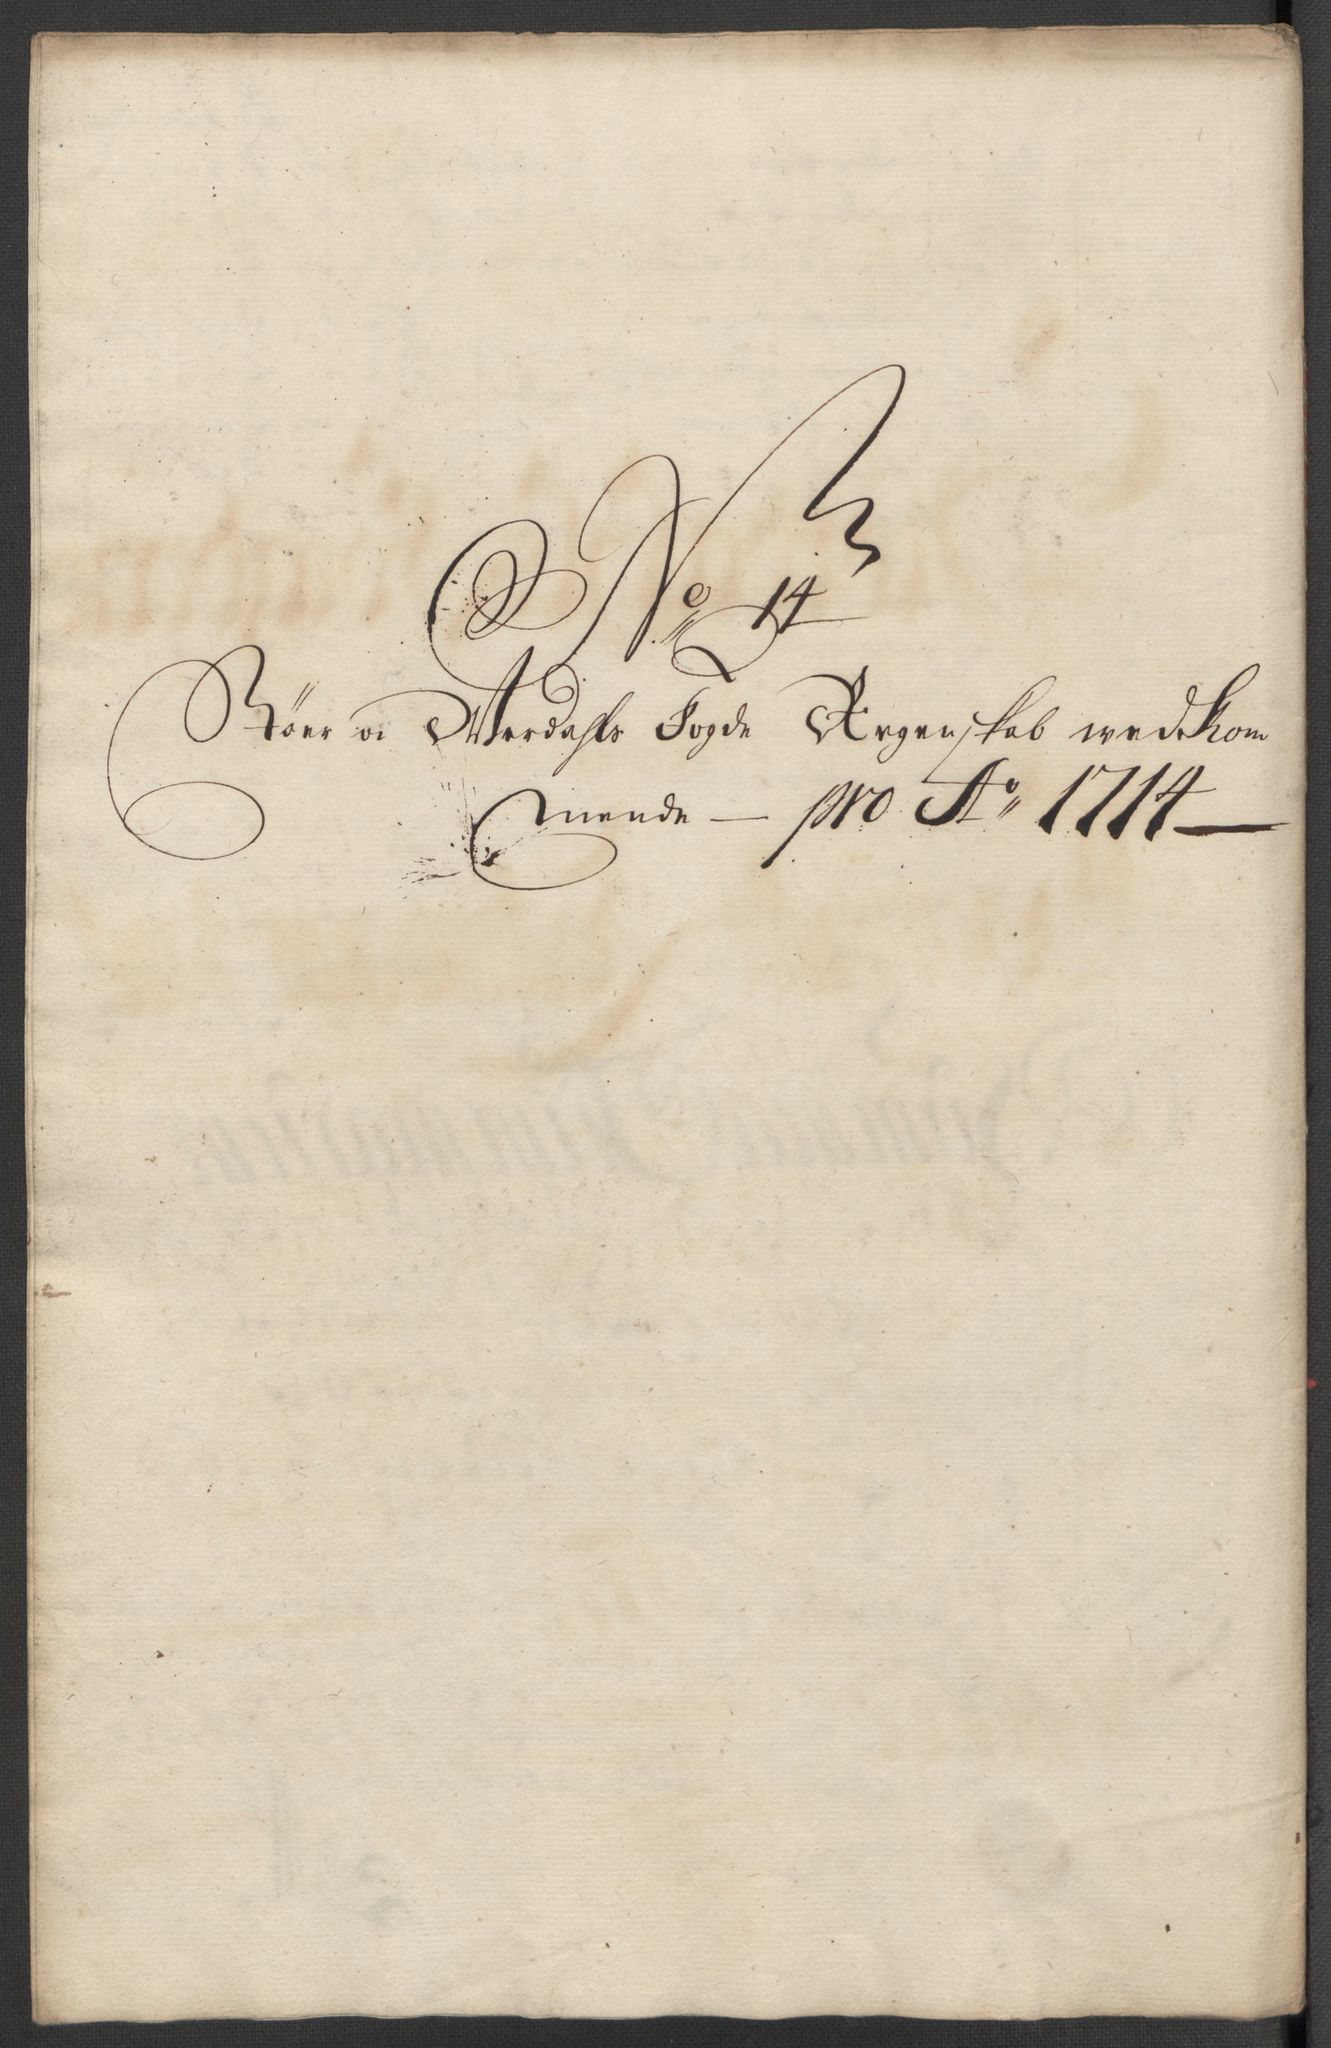 No 14
Støer oc Werdahls Fogde Regenskab wedkom
mende — pro Ao 1714 —